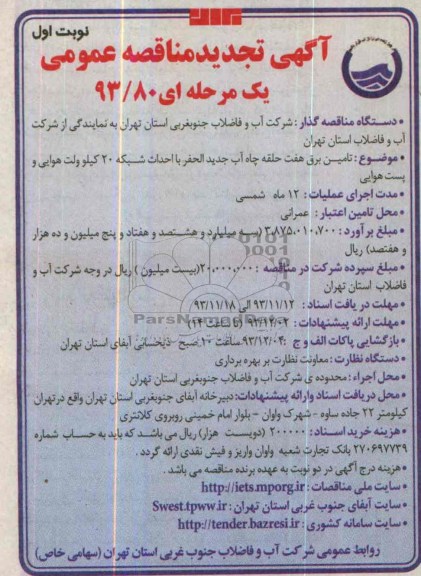 نوبت اول
آگهی تجدیدمناقصه عمومی
یک مرحله ای ۹۳/۸۰
• دستگاه مناقصه گذار : شرکت آب و فاضلاب جنوبغربی استان تهران به نمایندگی از شرکت
آب و فاضلاب استان تهران
• موضوع : تامیـن برق هفت حلقه چاه آب جدید الحفر با احداث شـبکه ۲۰ کیلو ولت هوایی و
پست هوایی
• مدت اجرای عملیات : ۱۲ ماه شمسی
• محل تامین اعتبار : عمرانی
• مبلغ برآورد : ۳،۸۷۵،۰۱۰،۷۰۰ (سـه میلیارد و هشـتصد و هفتاد و پنج میلیون و ده هزار
و هفتصد) ریال
• مبلغ سپرده شرکت در مناقصه : ۲۰،۰۰۰،۰۰۰ (بیست میلیون ) ریال در وجه شرکت آب و
فاضلاب استان تهران
• مهلت دریافت اسناد : ۹۳/۱۱/۱۲ الی ۹۳/۱۱/۱۸
• مهلت ارائه پیشنهادات : ۹۳/۱۲/۰۲ (تا ساعت ۱۴)
• بازگشایی پاکات الف و ج : ۹۳/۱۲/۰۴ ساعت ۱۰ صبح آبفای استان تهران
• دستگاه نظارت : معاونت نظارت بر بهره برداری
• محل اجراء : محدوده ی شرکت آب و فاضلاب جنوبغربی استان تهران
• محل دریافت اسناد وارائه پیشنهادات: دبیرخانه آبفای جنوبغربی استان تهران واقع درتهران
کیلومتر ۲۲ جاده ساوه - شهرک واوان - بلوار امام خمینی روبروی کلانتری
• هزینه خرید اسـناد : ۲۰۰۰۰۰ (دویسـت هزار) ریال می باشـد که باید به حساب شماره
۲۷۰۶۹۷۷۳۹ بانک تجارت شعبه واوان واریز و فیش نقدی ارائه گردد .
• هزینه درج آگهی در دو نوبت به عهده برنده مناقصه می باشد .
• سایت ملی مناقصات : http://iets.mporg.ir
• سایت آبفای جنوب غربی استان تهران : Swest.tpww.ir
• سایت سامانه کشوری : http://tender.bazresi.ir
روابط عمومی شرکت آب و فاضلاب جنوب غربی استان تهران (سهامی خاص)